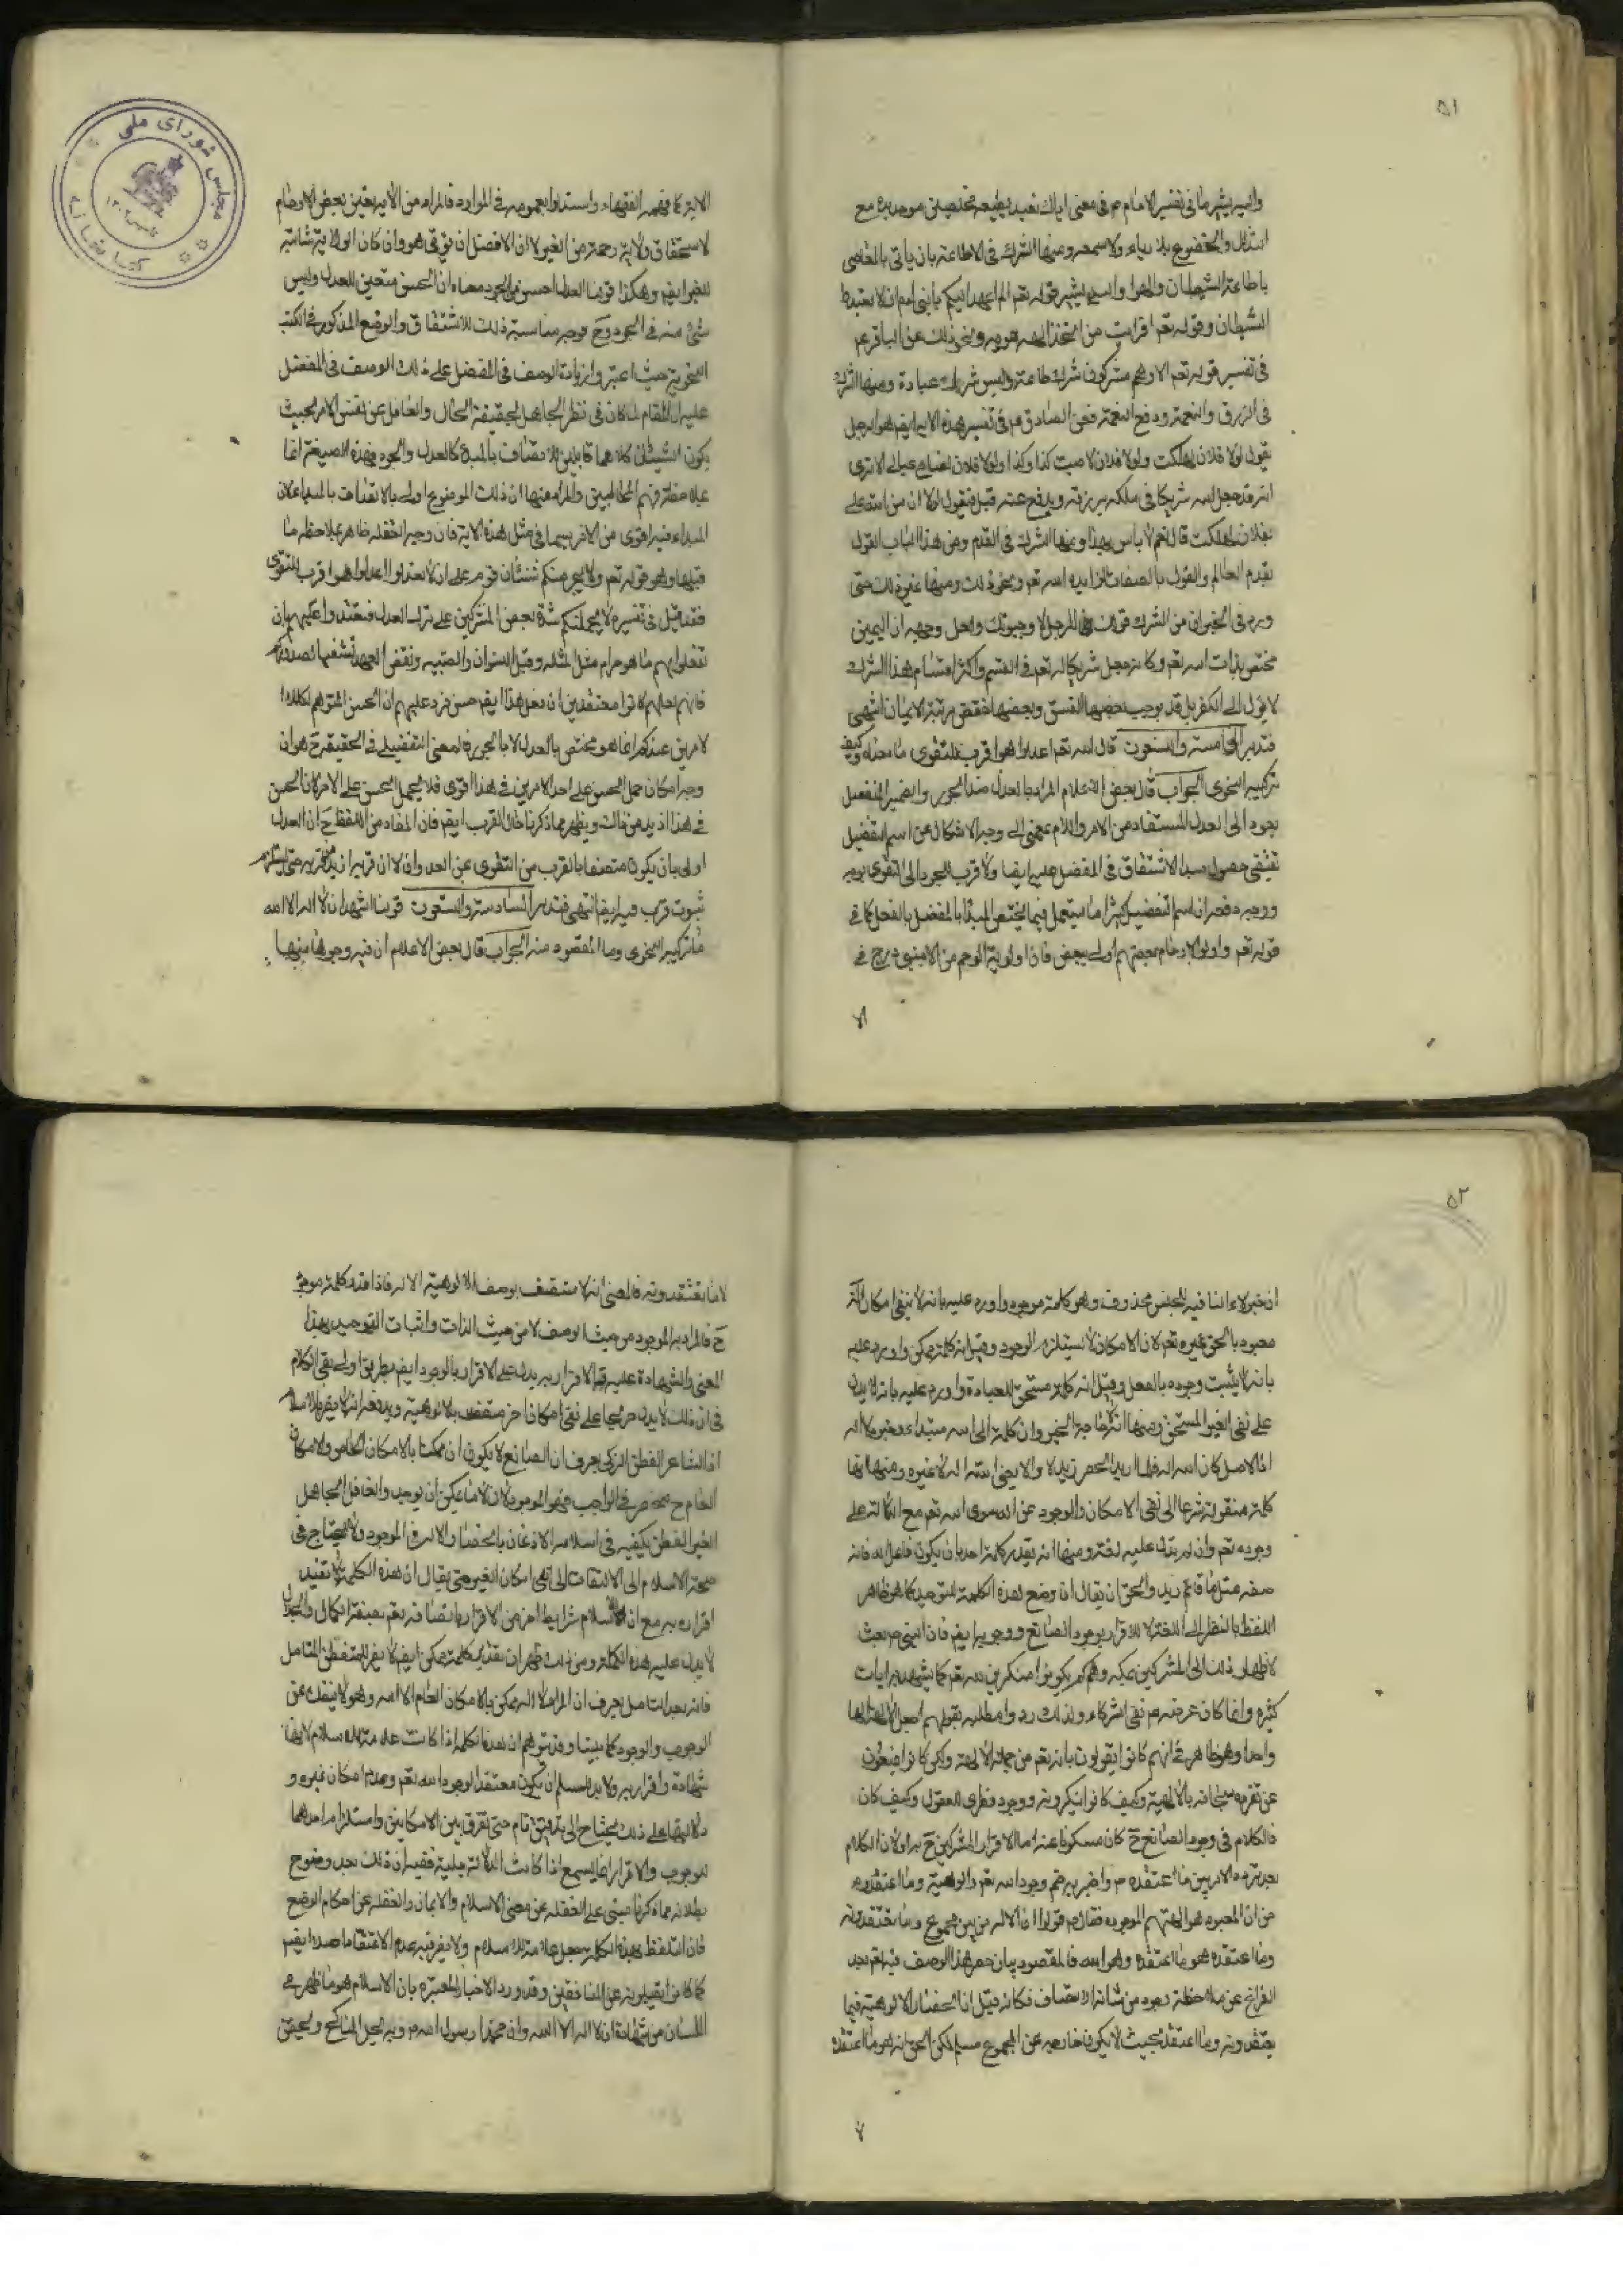 ٥١
واليه يشير ما في تفسير الامام ع في معنى اياك نعبد مخلصين موحدين مع
التذلل والخضوع بلا رياء ولا سمعة ومنها الشرك في الاطاعة بان ياتي بالمعاصي
باطاعة الشيطان والهوا واليه يشير قوله تعم الم اعهد اليكم يا بني ادم ان لا تعبدوا
الشيطان وقوله تعم افرايت من اتخذ الهه هويه ونحو ذلك عن الباقر ع
في تفسير قوله تعم الا وهم مشركون شرك طاعة وليس شرك عبادة ومنها الشرك
في الرزق والنعمة ودفع النقمة فعن الصادق ع في تفسير هذه الاية ايضم هو الرجل
يقول لولا فلان لهلكت ولولا فلان لاصبت كذا وكذا ولولا فلان لضاع عيالي الا ترى
انه قد جعل لله شريكا في ملكه يرزقه ويدفع عنه قيل فنقول لولا ان من الله علي
بفلان لهلكت قال نعم لا باس بهذا ومنها الشرك في القدم ومن هذا الباب القول
بقدم العالم والقول بالصفات الزايده لله تعم ونحو ذلك ومنها غير ذلك حتى
ورد في الخبر ان من الشرك قول الرجل لا وحيوتك ولعل وجهه ان اليمين
مختص بذات الله تعم وكانه جعل شريكا له تعم في القسم واكثر اقسام هذا الشرك
لا يؤل الى الكفر بل قد يوجب بعضها الفسق وبعضها نقص مرتبة الايمان انتهى
فتدبر الخامسة والتسعون قال الله تعم اعدلوا هو اقرب للتقوى ما معناه وكيف
تركيبه النحوى الجواب قال بعض الاعلام المراد بالعدل ضد الجور والضمير المنفصل
يعود الى العدل المستفاد من الامر واللام بمعنى الى وجه الاشكال عن اسم التفضيل
يقتضى حصول مبدا الاشتقاق في المفضل عليه ايضا ولا قرب للجور الى التقوى بوجه
ووجه دفعه ان اسم التفضيل كثيرا ما يستعمل فيما يختص المبدا بالمفضل بالفعل كما في
قوله تعم واولوا الارحام بعضهم اولى ببعض فان اولوية الرحم من الاجنبي درج في
الا
الاية كما فهمه الفقهاء واستدلوا بعمومه في الموارد فالمراد من الاية تعيين بعض الارحام
لاستحقاق ولاية رحمة من الغير لا ان الافضل ان يؤتى هو وان كان الولاية ثابتة
للغير ايضم وهكذا قولنا العدل احسن من الجور معناه ان الحسن متعين للعدل وليس
شئ منه في الجور وح فوجه مناسبة ذلك للاشتقاق والوضع المذكور في الكتب
النحوية حيث اعتبروا زيادة الوصف في المفضل على ذلك الوصف في المفضل
عليه ان المقام لما كان في نظر الجاهل بحقيقة الحال والغافل عن نفس الامر بحيث
يكون الشيئان كلاهما قابلين للاتصاف بالمبدء كالعدل والجور فهذه الصيغة انما
بملاحظة فهم المخاطبين والمراد منها ان ذلك الموضوع اولى بالاتصاف بالمبدا علان
المبداء فيه اقوى من الاخر سيما في مثل هذه الاية فان وجه الغفله ظاهر بملاحظة ما
قبلها وهو قوله تعم ولا يجرمنكم شنئان قوم على ان لا تعدلوا اعدلوا هو اقرب للتقوى
فقد قيل في تفسيره لا يحملنكم شدة بغض المشركين على ترك العدل فتعتدوا عليهم بان
تفعلوا بهم ما هو حرام مثل المثله وقتل النسوان والصبيه ونقض العهد تشفيا لصدوركم
فانهم لعلهم كانوا معتقدين ان فعل هذا ايضم حسن فرد عليهم ان الحسن المتوهم لكلا
لامرين عندكم انما هو مختص بالعدل لا بالجور فالمعنى التفضيلي في الحقيقة ح هو ان
وجه امكان حمل الحسن على احد الامرين في هذا اقوى فلا يحمل الحسن على الاخر كان الحسن
في هذا ازيد من ذلك ويظهر مما ذكرنا حال القرب ايضم فان المفاد من اللفظ ح ان العدل
اولى بان يكون متصفا بالقرب من التقوى عن العدوان لا ان قربه ازيد من قربه حتى يستلزم
ثبوت قرب فيه ايضا انتهى فتدبر السادسة والتسعون قولنا اشهد ان لا اله الا الله
ما تركيبه النحوى وما المقصود منه الجواب قال بعض الاعلام ان فيه وجوها منها
٥٢
ان خبر لاء النافية للجنس محذوف وهو كلمة موجود واورد عليه بانه لا ينفى امكان اله
معبود بالحق غيره تعم لان الامكان لا يستلزم الوجود وقيل انه كلمة ممكن واورد عليه
بانه لا يثبت وجوده بالفعل وقيل انه كلمة مستحق للعبادة واورد عليه بانه لا يدل
على نفى الغير المستحق ومنها انه لا حاجة الى الخبر وان كلمة الله مبتداء وخبره لا اله
اذ الاصل كان الله اله فلما اريد الحصر زيد لا والا يعنى الله اله لا غيره ومنها انها
كلمة منقولة شرعا الى نفى الامكان والوجود عن اله سوى الله تعم مع الدلالة على
وجوده تعم وان لم تدل عليه لغة ومنها انه بتقدير كلمة احد بان يكون فاعل اله فانه
صفه مثل ما قائم زيد والحق ان يقال ان وضع هذه الكلمة للتوحيد كما هو ظاهر
اللفظ بالنظر الى اللغة لا للاقرار بوجود الصانع ووجوبه ايضم فان النبي ص بعث
لاظهار ذلك الى المشركين بمكه وهم لم يكونوا منكرين لله تعم كما يشهد به ايات
كثيره وانما كان غرضه ص نفى الشركاء ولذلك ردوا مطلبه بقولهم اجعل الالهة الها
واحدا وهو ظاهر في انهم كانوا يقولون بانه تعم من جملة الالهة ولكن كانوا ينفون
عن تفرده سبحانه بالالهية وكيف كانوا ينكرونه ووجوده فطرى العقول وكيف كان
فالكلام في وجود الصانع ح كان مسكوتا عنه اما الاقرار المشركين ح به او لان الكلام
بعد تردد الامر بين ما اعتقده ص واخبر به من وجود الله تعم والوهيته وما اعتقدوه
من ان المعبود هو الهتهم الموجوده فقال ص قولوا ان الاله من بين مجموع ما يعتقدونه
وما اعتقده هو ما اعتقده وهو الله فالمقصود بيان حصر هذا الوصف فيه تعم بعد
الفراغ عن ملاحظة وجود من شانه الاتصاف فكانه قيل ان انحصار الالوهية فيما
يعتقدونه وما اعتقده بحيث لا يكون خارجه عن المجموع مسلم لكن الحق انه هو ما اعتقده
لا
لا ما يعتقدونه فالمعنى انه لا متصف بوصف الالوهية الا له فاذا قدر كلمة موجود
ح فالمراد به الموجود من حيث الوصف لا من حيث الذات واثبات التوحيد بهذا
المعنى والشهادة عليه والاقرار به يدل على الاقرار بالوجود ايضم بطريق اولى بقى الكلام
في ان ذلك لا يدل صريحا على نفى امكان اخر متصف بالالوهية ويدفعه انه لا يضر بالاسلام
اذ الشاعر الفطن الزكى يعرف ان الصانع لا يكون ان ممكنا بالامكان الخاص والامكان
العام ح منحصر في الواجب فهو الموجود لان لا ما يمكن ان يوجد والغافل الجاهل
الغير الفطن يكفيه في اسلامه الاذعان بانحصار الاله في الموجود ولا يحتاج في
صحة الاسلام الى الالتفات الى نفى امكان الغير حتى يقال ان هذه الكلمة لا تفيد
اقراره به مع ان للاسلام شرايط اخر من الاقرار باتصافه تعم بصفة الكمال والجلال
لا يدل عليه هذه الكلمة ومن ذلك ظهر ان تقدير كلمة ممكن ايضم لا يضر للمتفطن المتامل
فانه بعد التامل يعرف ان المراد لا اله ممكن بالامكان العام الا الله وهو لا ينفك عن
الوجوب والوجود كما بينا وقد توهم ان هذه الكلمة اذا كانت علامة للاسلام لانها
شهادة واقرار به ولا بد للمسلم ان يكون معتقدا لوجود الله تعم وعدم امكان غيره و
دلالتها على ذلك يحتاج الى تدقيق تام حتى تفرق بين الامكانين واستلزام احدهما
للوجوب والاقرار انما يسمع اذا كانت الدلالة جلية ففيه ان ذلك بعد وضوح
بطلانه مما ذكرنا مبنى على الغفله عن معنى الاسلام والايمان والغفله عن احكام الوضع
فان التلفظ بهذه الكلمة جعل علامة للاسلام ولا يضر فيه عدم الاعتقاد اصلا ايضم
كما كانوا يقبلونه عن المنافقين وقد ورد الاخبار المعتبره بان الاسلام هو ما ظهر على
اللسان من شهادة ان لا اله الا الله وان محمدا رسول الله ص وبه يحل المناكح ويحقن
مجلس شوراى ملى
كتابخانه